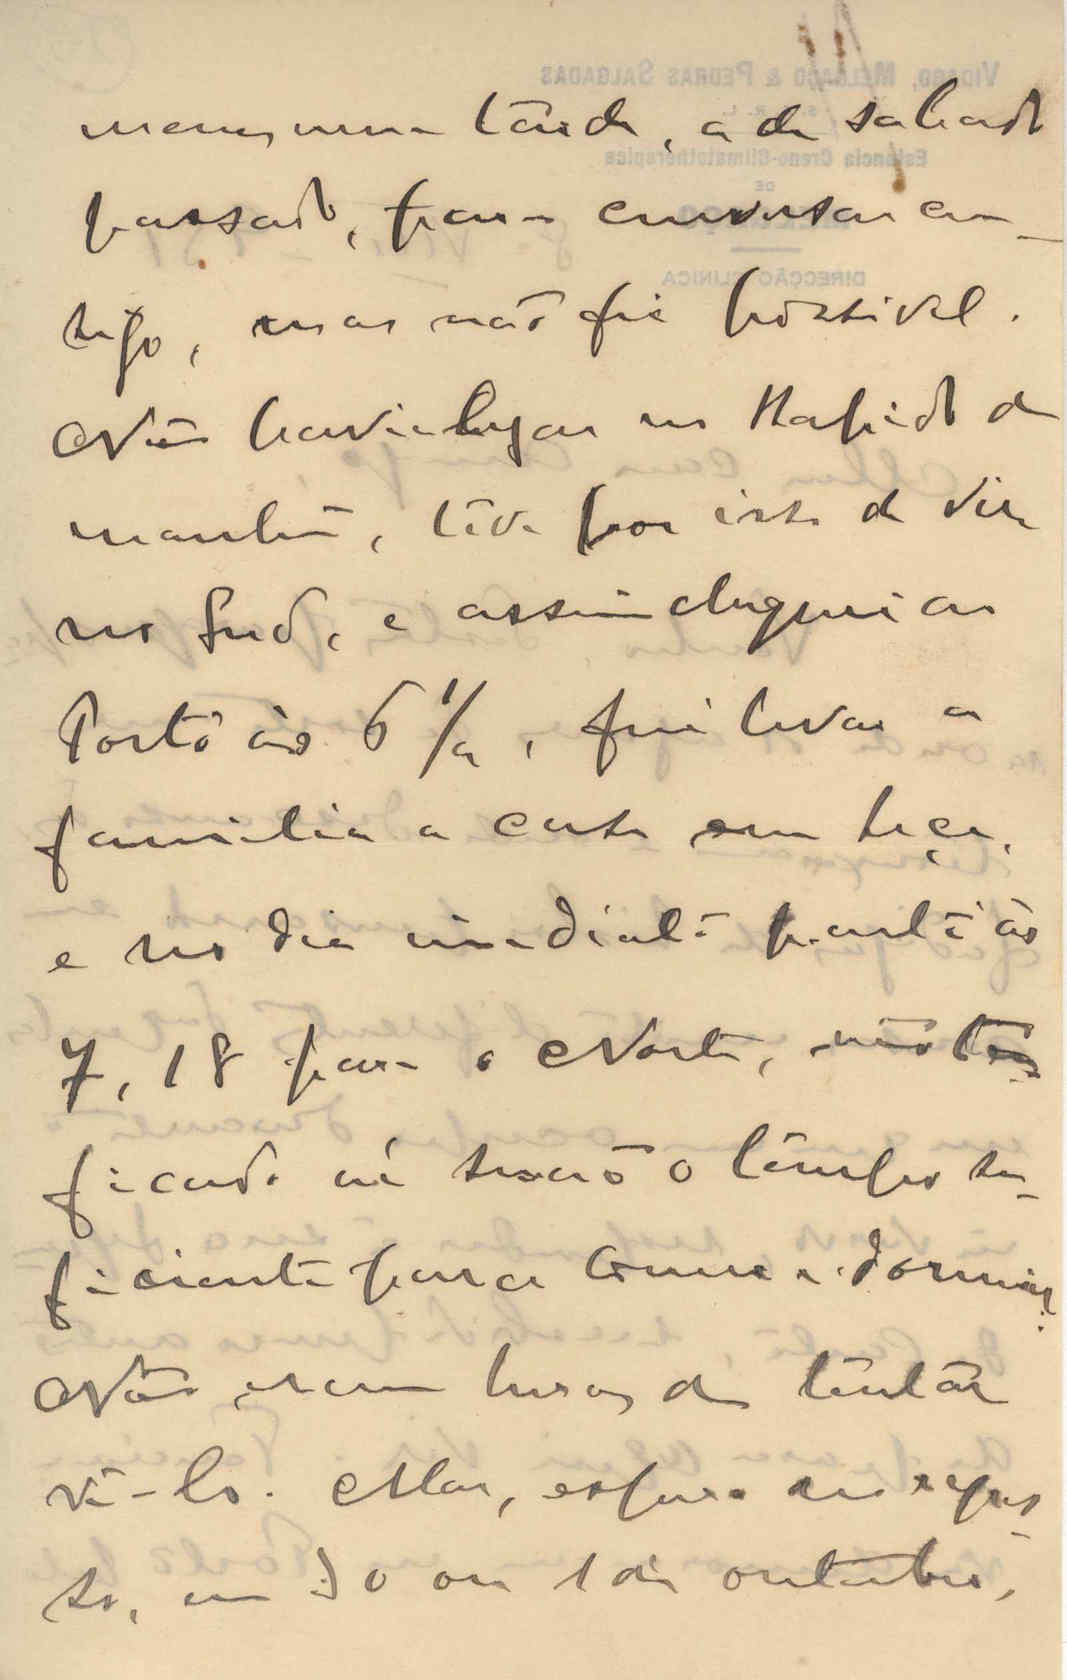 menos uma tarde, a de sabado
passado, para conversar con-
sigo, mas não foi possivel.
Não havia lugar no Rapido da
manhã, tive por isto de vir
no Sud, e assim cheguei ao
Porto ás 6 1/2, fui levar a
familia a casa
e no dia imediato parti ás
7,18 para o Norte, não
ficando ali senão o tempo su-
ficiente para comer e dormir.
Não eram horas de tentar
vê-lo. Mas, espero no regres-
so, em 30 ou 1 de outubro,